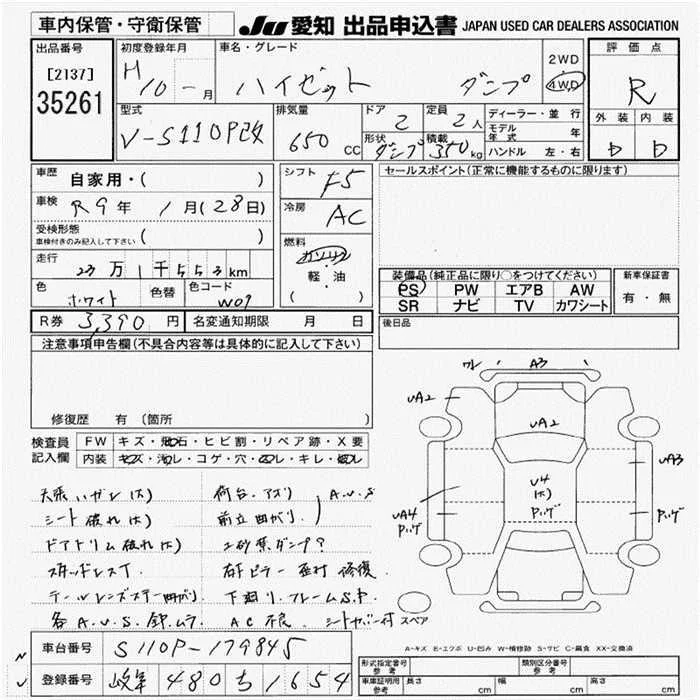 車内保管・守衛保管 JU 愛知 出品申込書 JAPAN USED CAR DEALERS ASSOCIATION
出品番号
[2137]
35261
初度登録年月
H10 - 月
車名・グレード
ハイゼット ダンプ
2WD
4WD
評価点
R
外装 内装
D D
型式
V-S110P改
排気量
650 CC
ドア
2
定員
2人
形状
ダンプ
積載
350kg
ディーラー・並行
モデル年式 年
ハンドル 左・右
車歴 自家用・( )
車検 R9年 1月(28日)
受検形態
車検付きのみ記入して下さい ( )
走行
23万1千553km
色 色替 色コード
ホワイト W09
シフト F5
冷房 AC
燃料
ガソリン
軽・油
( )
セールスポイント(正常に機能するものに限ります)
装備品(純正品に限り○をつけてください)
PS PW エアB AW
SR ナビ TV カワシート
新車保証書
有・無
R券 3,390円 名変通知期限 月 日
後日品
注意事項申告欄(不具合内容等は具体的に記入して下さい)
修復歴 有 (箇所 )
検査員記入欄
FW キズ・飛石・ヒビ割・リペア跡・X要
内装 キズ・汚レ・コゲ・穴・ キレ・
天張ハガレ(大) 荷台・アオリ A.U.S
シート破れ(大) 前立曲がり
ドアトリム破れ(大) 土砂禁ダンプ?
スタッドレスT. 右Fピラー 歪 修復
テールレンズステー曲がり 下廻り.フレームS.P
各A.U.S AC不良 シートカバー付
ワレ A3
UA2
UA2
U4
(大)
UA3
UA4
スペア
A-キズ E-エクボ U-凹み W-補修跡 S-サビ C-腐食 XX-交換済
車台番号 S110P-179845
登録番号 岐阜480ち1654
形式指定番号 参考
類別区分番号 参考
車庫証明用 参考 長さ cm 幅 cm 高さ cm